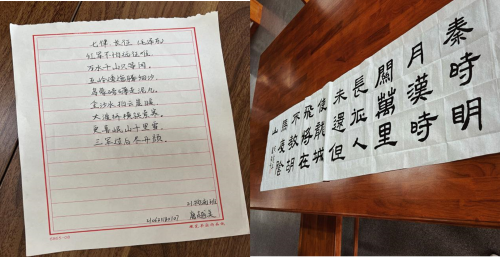 七律 长征 (毛泽东)
红军不怕远征难
万水千山只等闲
五岭逶迤腾细浪
乌蒙磅礴走泥丸
金沙水拍云崖暖
大渡桥横铁索寒
更喜岷山千里雪
三军过后尽开颜
秦時明
月漢時
關萬里
長征人
未還但
使龍城
飛將在
不教胡
馬度陰
山